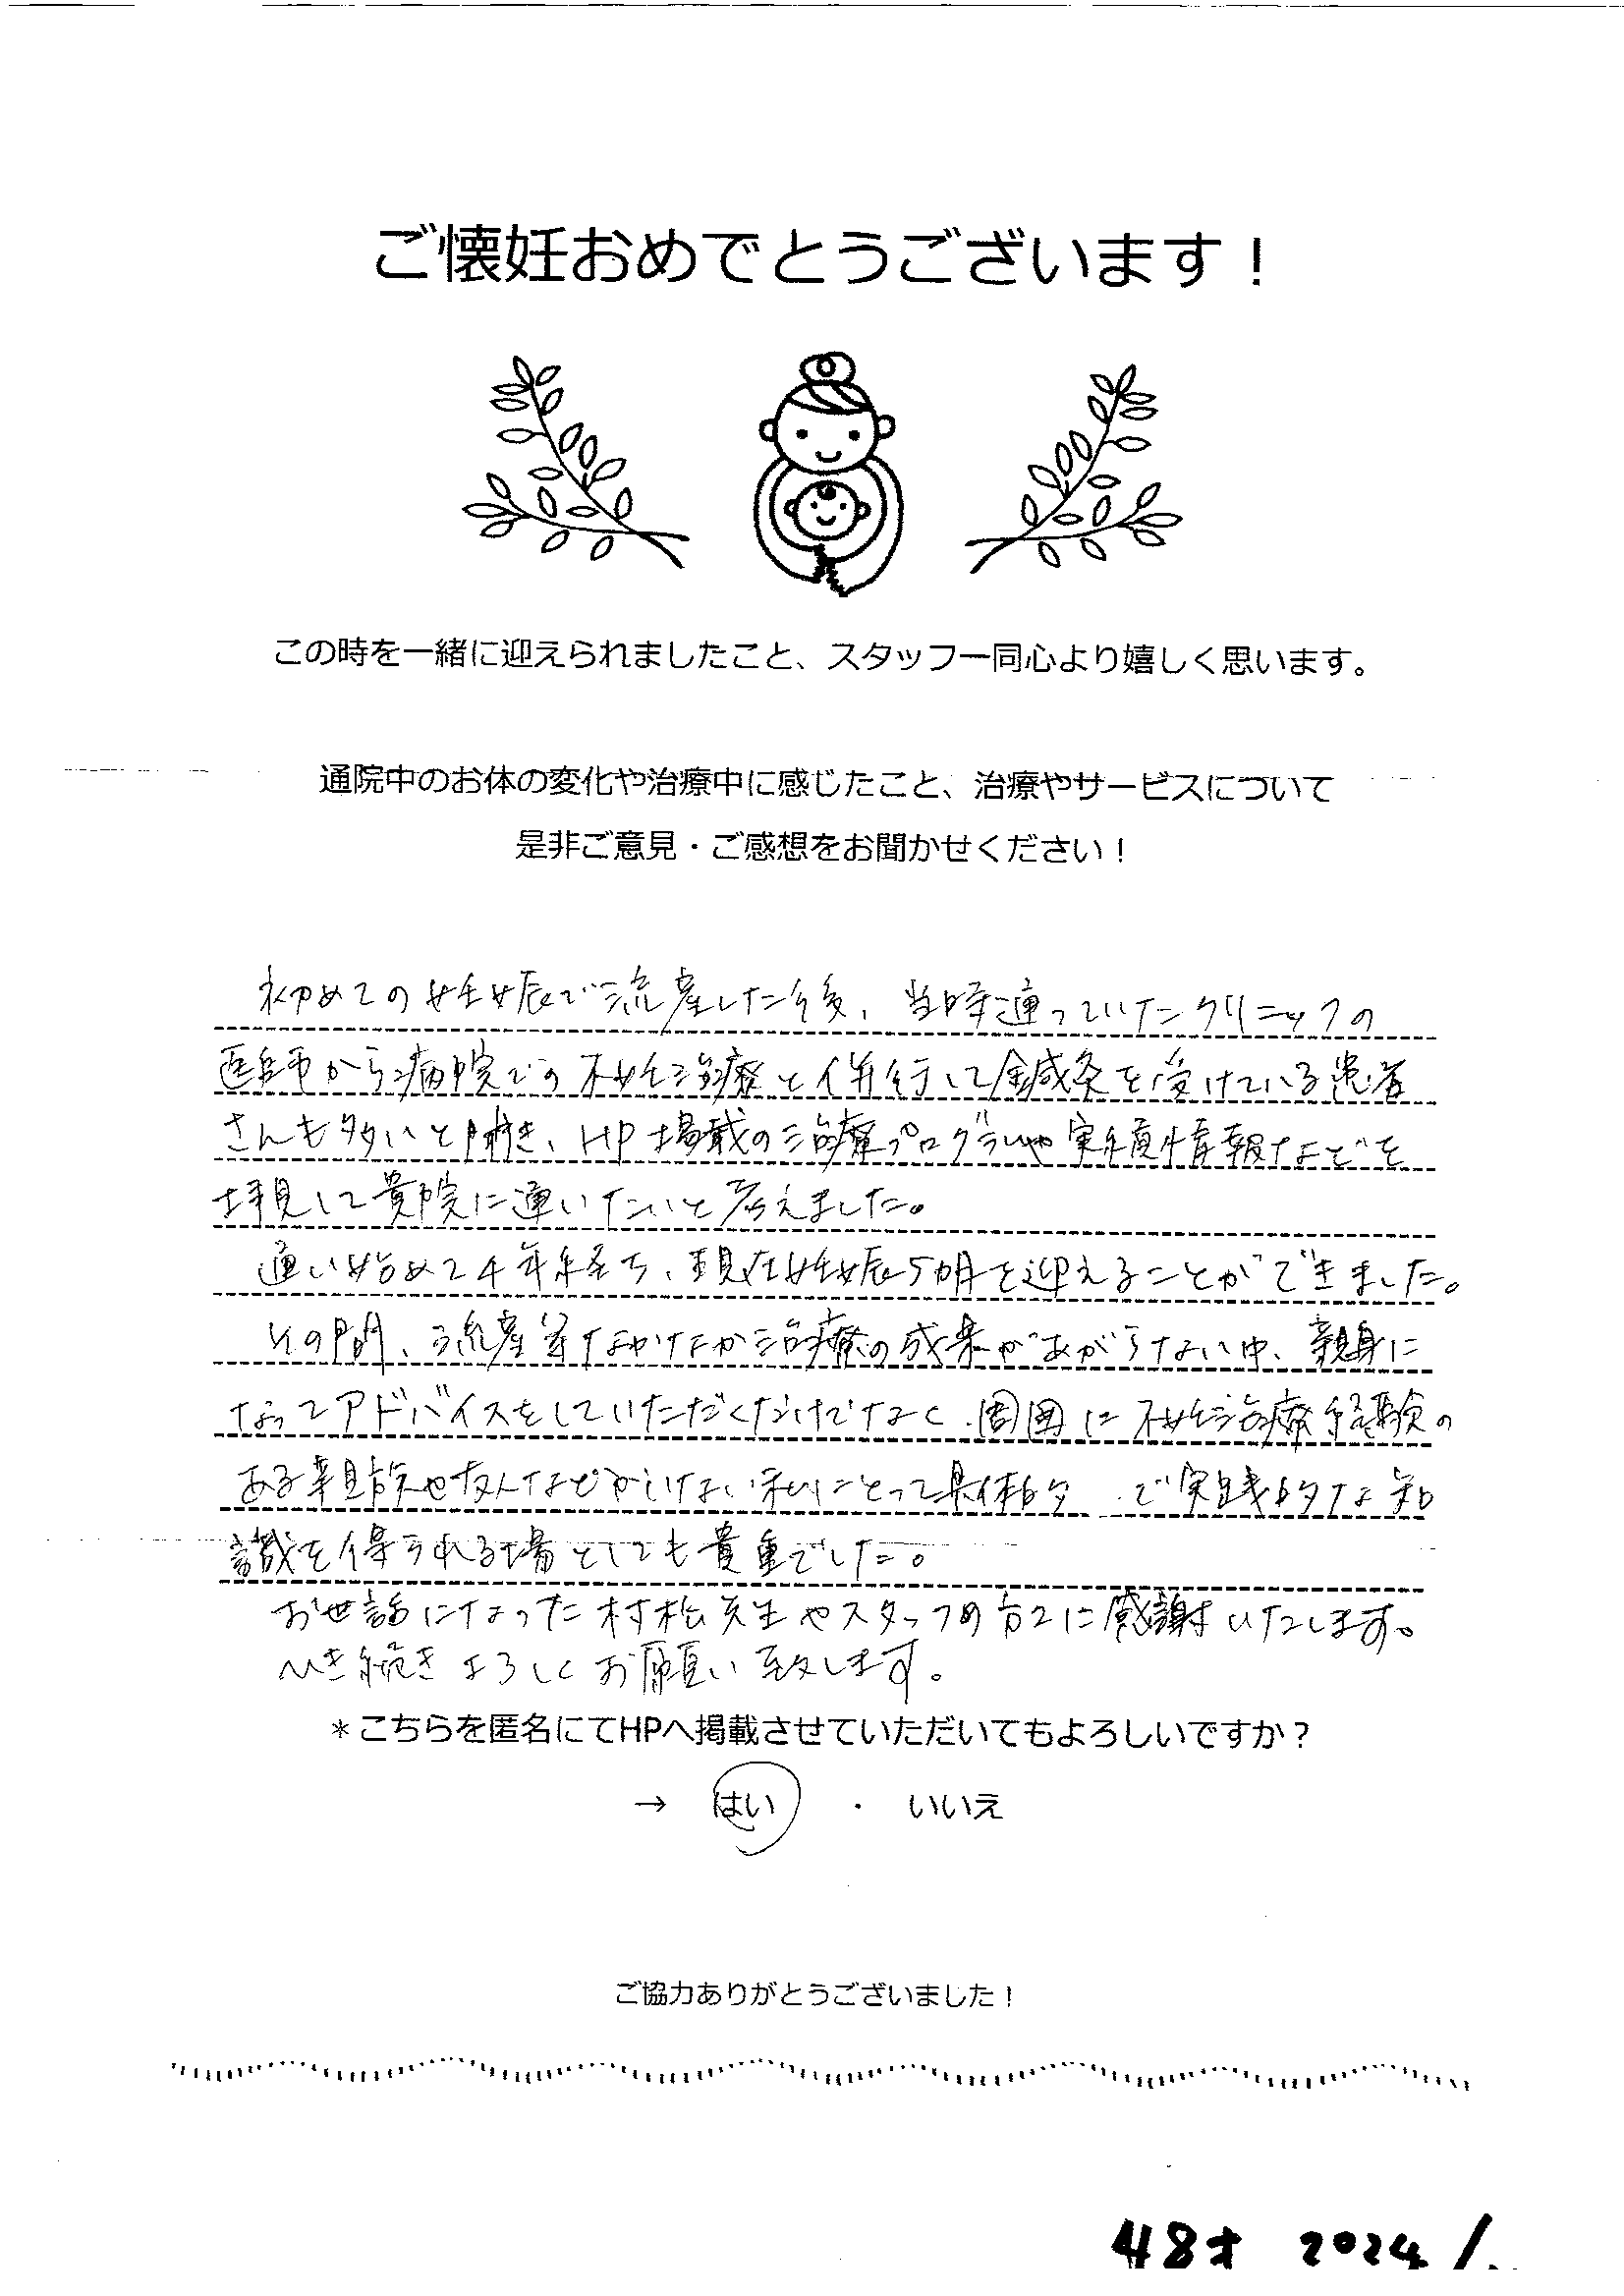 ご懐妊おめでとうございます！
この時を一緒に迎えられましたこと、スタッフ一同心より嬉しく思います。
通院中のお体の変化や治療中に感じたこと、治療やサービスについて
是非ご意見・ご感想をお聞かせください！
初めての妊娠で流産した後、当時通っていたクリニックの
医師から病院での不妊治療と併行して鍼灸を受けている患者
さんも多いと聞き、HP掲載の治療プログラムや実績情報などを
拝見して貴院に通いたいと考えました。
通い始めて4年経ち、現在妊娠5カ月を迎えることができました。
その間、流産等なかなか治療の成果があがらない中、親身に
なってアドバイスをしていただくだけでなく、周囲に不妊治療経験の
ある親族や友人などがいない私にとって具体的で実践的な知
識を得られる場としても貴重でした。
お世話になった村松先生やスタッフの方々に感謝いたします。
ひき続きよろしくお願い致します。
＊こちらを匿名にてHPへ掲載させていただいてもよろしいですか？
→ はい ・ いいえ
ご協力ありがとうございました！
48才 2024/